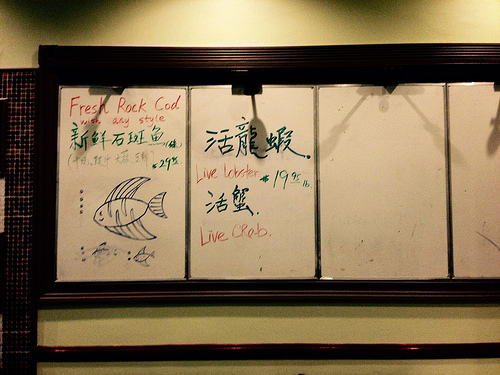 Fresh Rock Cod
with any style
新鮮石斑魚
$29.95
活龍蝦.
Live Lobster $19.95 lb.
活蟹.
Live CRab.